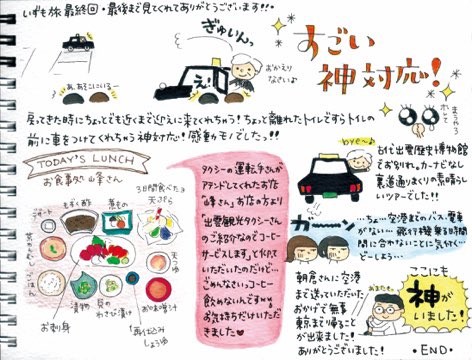 いずも旅最終回・最後まで見てくれてありがとうございます!!・
ぎゅいんっ
あ、あそこにいるー
え!
おかえり
なさいよ
すごい
神対応!
ホント
まぢやろ
戻ってきた時にちょっとでも近くまで迎えに来てくれちゃう!ちょっと離れたトイレですらトイレの
前に車をつけてくれちゃう神対応!感動モノでしたっ!!
TODAY'S LUNCH
お食事処 峰さん
3日間食べた3
天ぷら
もずく酢
煮もの
デザート
茶わんむし
ごはん
お刺身
漬物
わさび漬け
再仕込み
しょうゆ
お味噌汁
天つゆ
タクシーの運転手さんが
アテンドしてくれたお店
「峰さん」お店の方より
「出雲観光タクシーさん
のご紹介なのでコーヒー
サービスします」と作れて
いただいたのだけど…
ごめんないっコーヒー
飲めないんですww
お気持ちだけいただ
きました♥
bye〜♪
古代出雲歴史博物館
でお別れ。カーナビなし
裏道通りまくりの素晴らし
いツアーでした!!
ガーン
…ちょ…空港までのバス・電車
がない…飛行機乗る時間
に間に合わないことに気付く…
どーしよう…
朝倉さんに空港
まで送っていただいた
おかげで無事
東京まで帰ること
が出来ました!
ありがとうございました!
おまたせ。
ここにも
神が
いました!
・END・